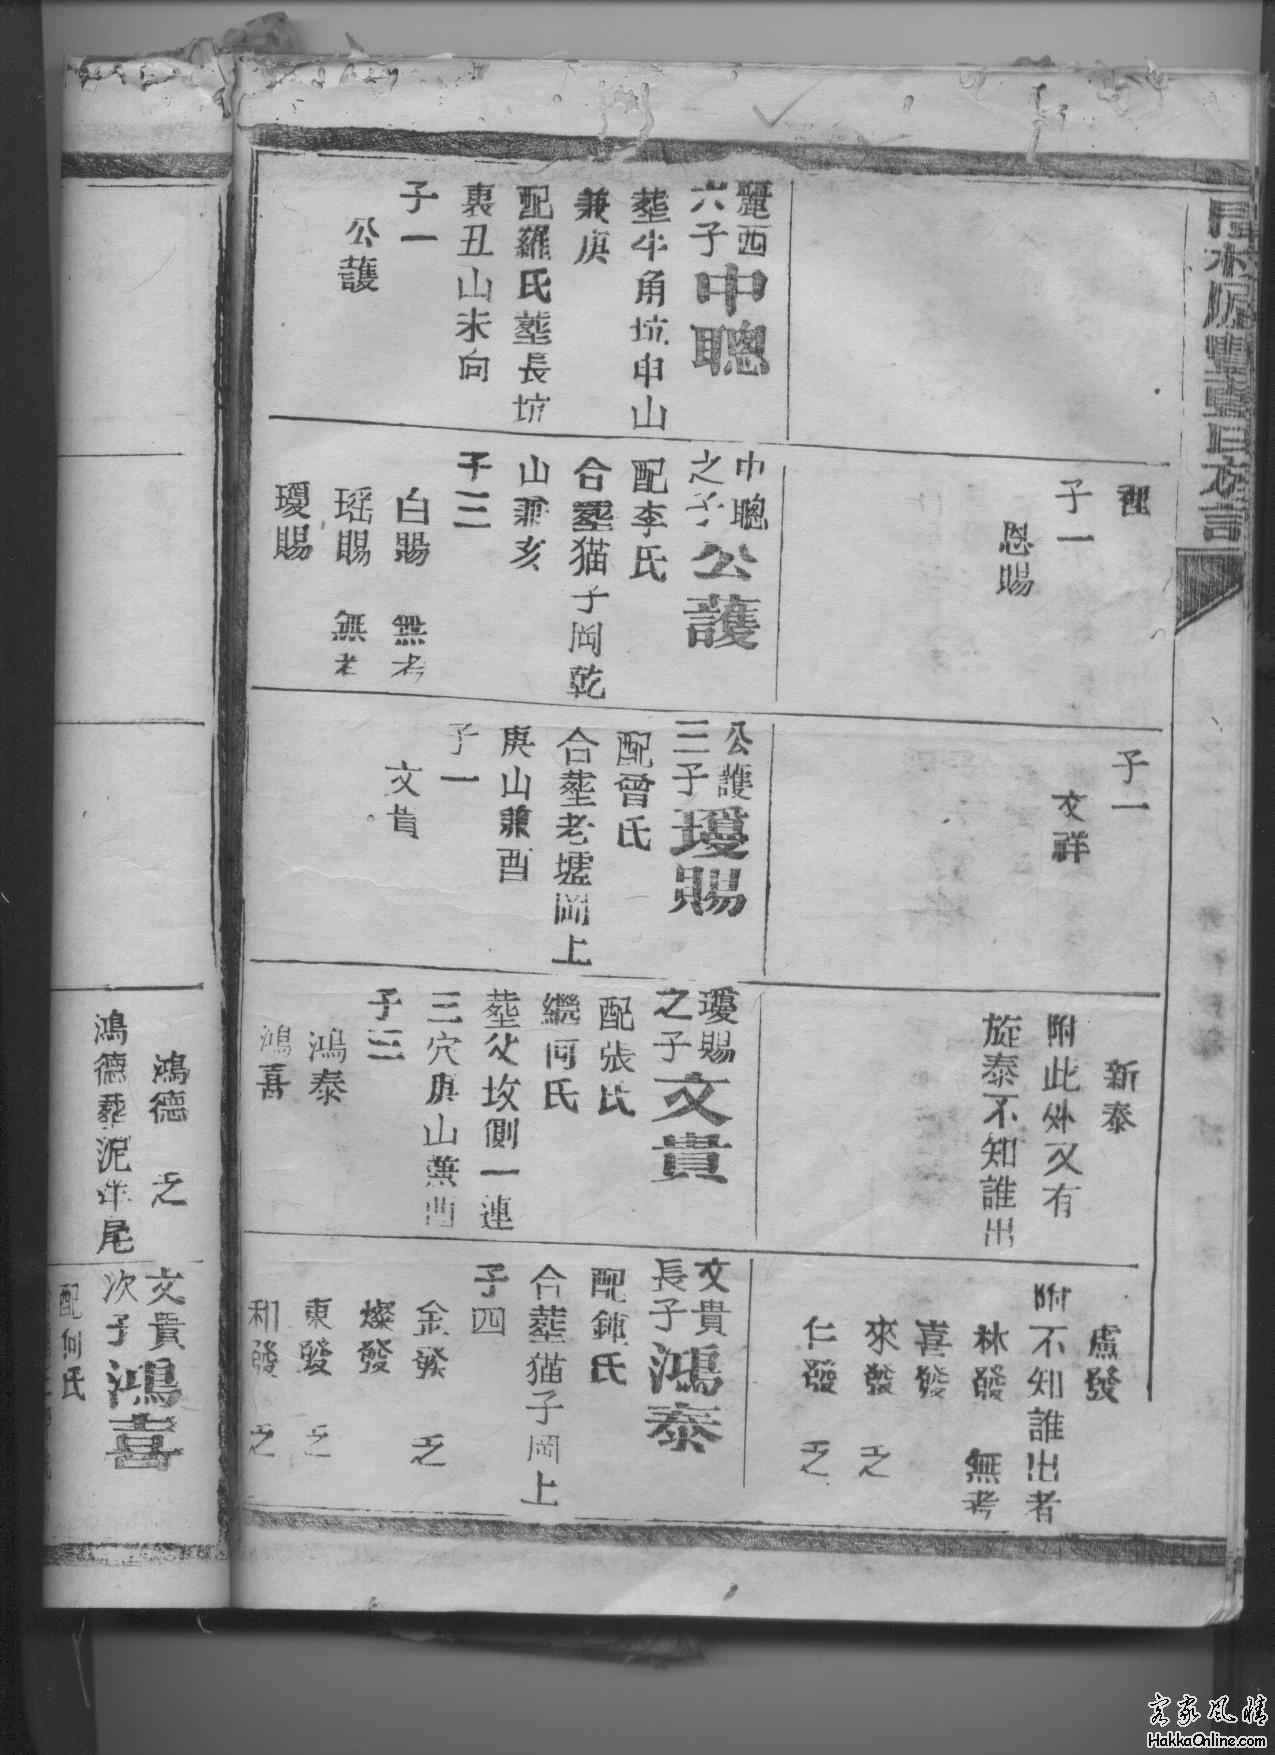 裡
子一
恩賜
子一
文祥
新泰
附此外又有
旋泰不知誰出
盧發
附不知誰出者
林發 無考
喜發
來發 乏
仁發 乏
麗西
六子
中聰
塟牛角坑申山
兼庚
配羅氏塟長坑
裏丑山未向
子一
公護
中聰
之子
公護
配李氏
合塟猫子岡乾
山兼亥
子三
白賜 無考
瑶賜 無考
瓊賜
公護
三子
瓊賜
配曾氏
合塟老墟岡上
庚山兼酉
子一
文貴
瓊賜
之子
文貴
配張氏
繼何氏
塟父坟側一連
三穴庚山兼酉
子三
鴻泰
鴻喜
文貴
長子
鴻泰
配鍾氏
合塟猫子岡上
子四
金發 乏
燦發
東發 乏
利發 乏
鴻德 乏
鴻德塟泥洋尾
文貴
次子
鴻喜
配何氏
客家風情
HakkaOnline.com